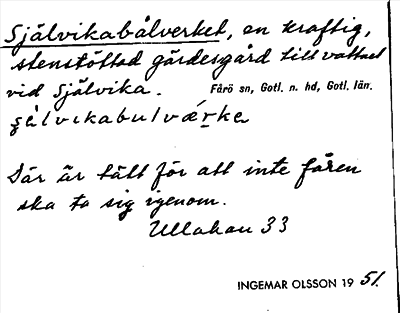 Självikabålverket, en kraftig,
stenstöttad gärdesgård till vattnet
vid Självika. Fårö sn, Gotl. n. hd, Gotl. län.
şálvıkabulvǽrke
Där är tätt för att inte fåren
ska ta sig igenom.
Ullahau 33
INGEMAR OLSSON 19 51.